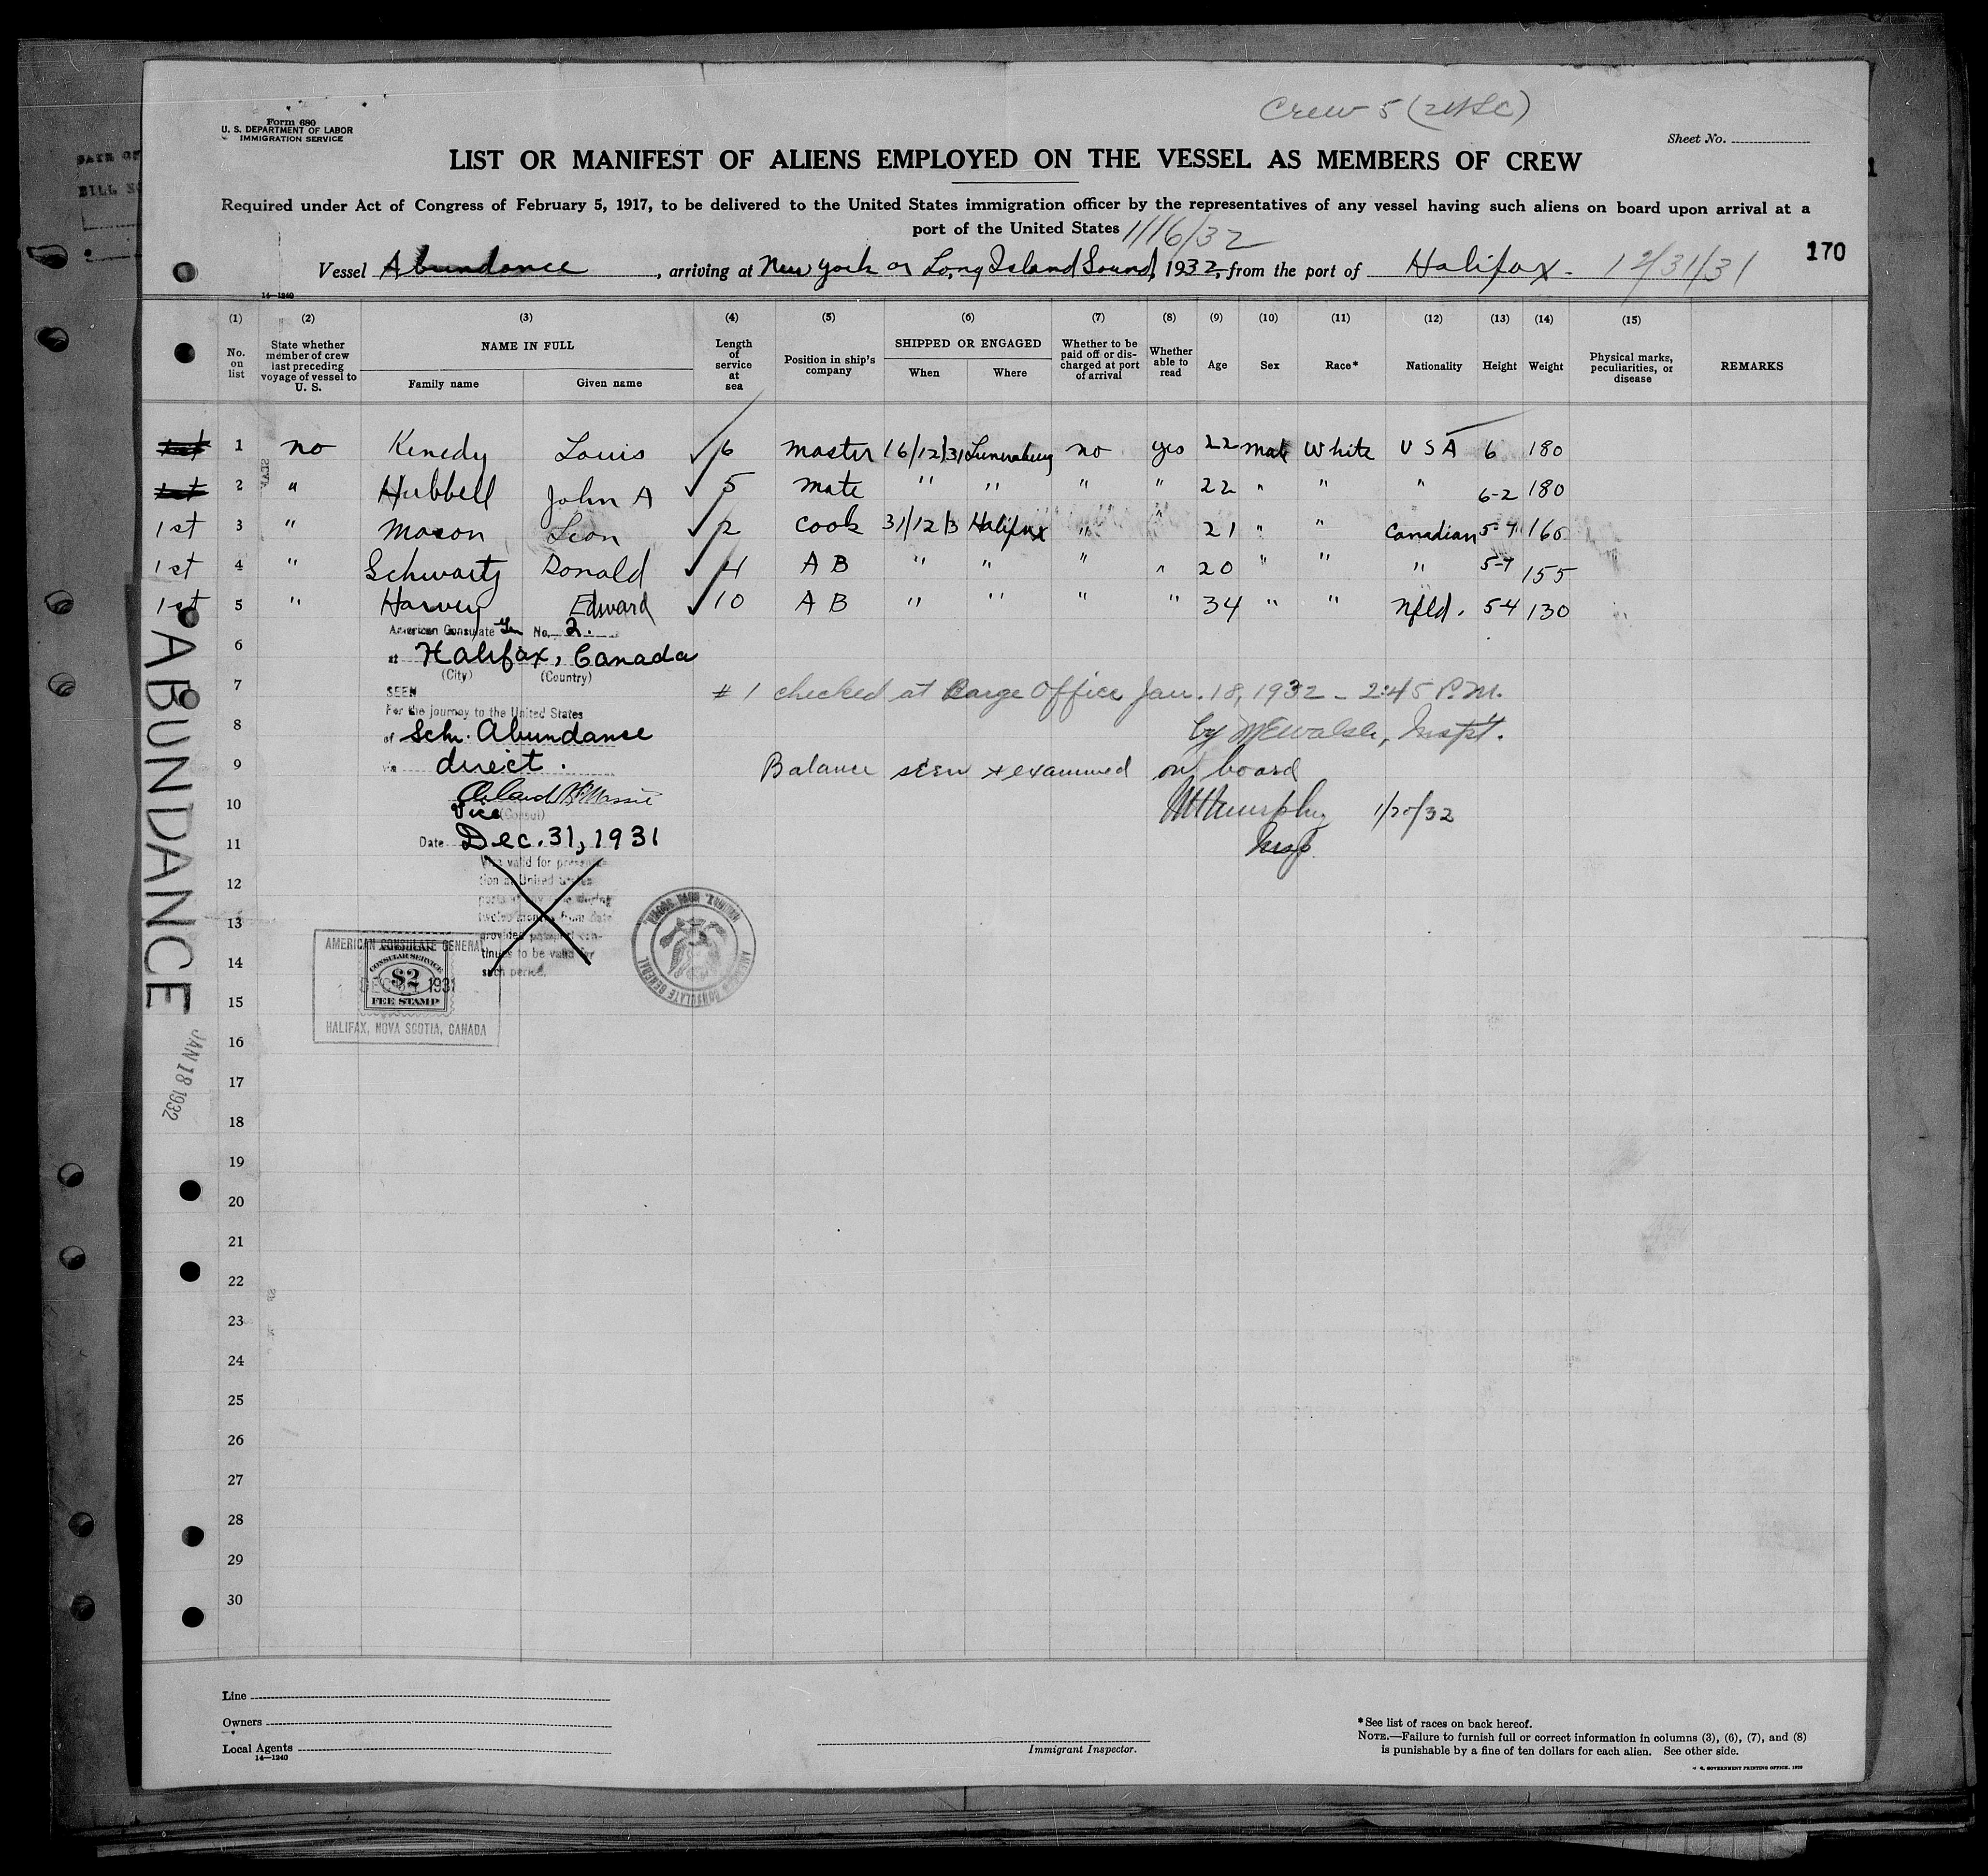 Crew 5 (2 USC)
Form 680
U. S. DEPARTMENT OF LABOR
IMMIGRATION SERVICE
Sheet No.
LIST OR MANIFEST OF ALIENS EMPLOYED ON THE VESSEL AS MEMBERS OF CREW
Required under Act of Congress of February 5, 1917, to be delivered to the United States immigration officer by the representatives of any vessel having such aliens on board upon arrival at a
port of the United States 1/16/32
170
Vessel Abundance, arriving at New York or Long Island Sound, 1932, from the port of Halifax - 12/31/31
14—1240
(1) (2) (3) (4) (5) (6) (7) (8) (9) (10) (11) (12) (13) (14) (15)
No. on list State whether member of crew last preceding voyage of vessel to U. S. NAME IN FULL Family name Given name Length of service at sea Position in ship's company SHIPPED OR ENGAGED When Where Whether to be paid off or discharged at port of arrival Whether able to read Age Sex Race* Nationality Height Weight Physical marks, peculiarities, or disease REMARKS
1st 1 no Kenedy Louis 6 master 16/12/31 Lunenburg no yes 22 male White USA 6 180
1st 2 " Hubbell John A 5 mate " " " " 22 " " " 6-2 180
1st 3 " Mason Leon 2 cook 31/12/3 Halifax " " 21 " " Canadian 5-7 160
1st 4 " Schwartz Donald 4 AB " " " " 20 " " " 5-7 155
1st 5 " Harvey Edward 10 AB " " " " 34 " " Nfld. 5-4 130
American Consulate Gen No. 2.
6
at Halifax, Canada
(City) (Country)
7
SEEN
# 1 checked at Barge Office Jan. 18, 1932 - 2:45 P.M.
For the journey to the United States
8
of Sch. Abundance
by M E Walsh, Inspt.
9
via direct.
Balance seen & examined on board
10
Vice (Consul)
Murphy 1/20/32
11
Date Dec. 31, 1931
Insp
Visa valid for presentation at United States ports at any time during twelve months from date provided passport continues to be valid for such period.
12
13
14
15
16
AMERICAN CONSULATE GENERAL
AMERICAN
CONSULAR SERVICE
$2
DEC 31 1931
FEE STAMP
HALIFAX, NOVA SCOTIA, CANADA
AMERICAN CONSULATE GENERAL
HALIFAX, NOVA SCOTIA.
ABUNDANCE
JAN 18 1932
17
18
19
20
21
22
23
24
25
26
27
28
29
30
Line
Owners
Local Agents
14—1240
Immigrant Inspector.
*See list of races on back hereof.
NOTE.—Failure to furnish full or correct information in columns (3), (6), (7), and (8)
is punishable by a fine of ten dollars for each alien. See other side.
GOVERNMENT PRINTING OFFICE: 1929